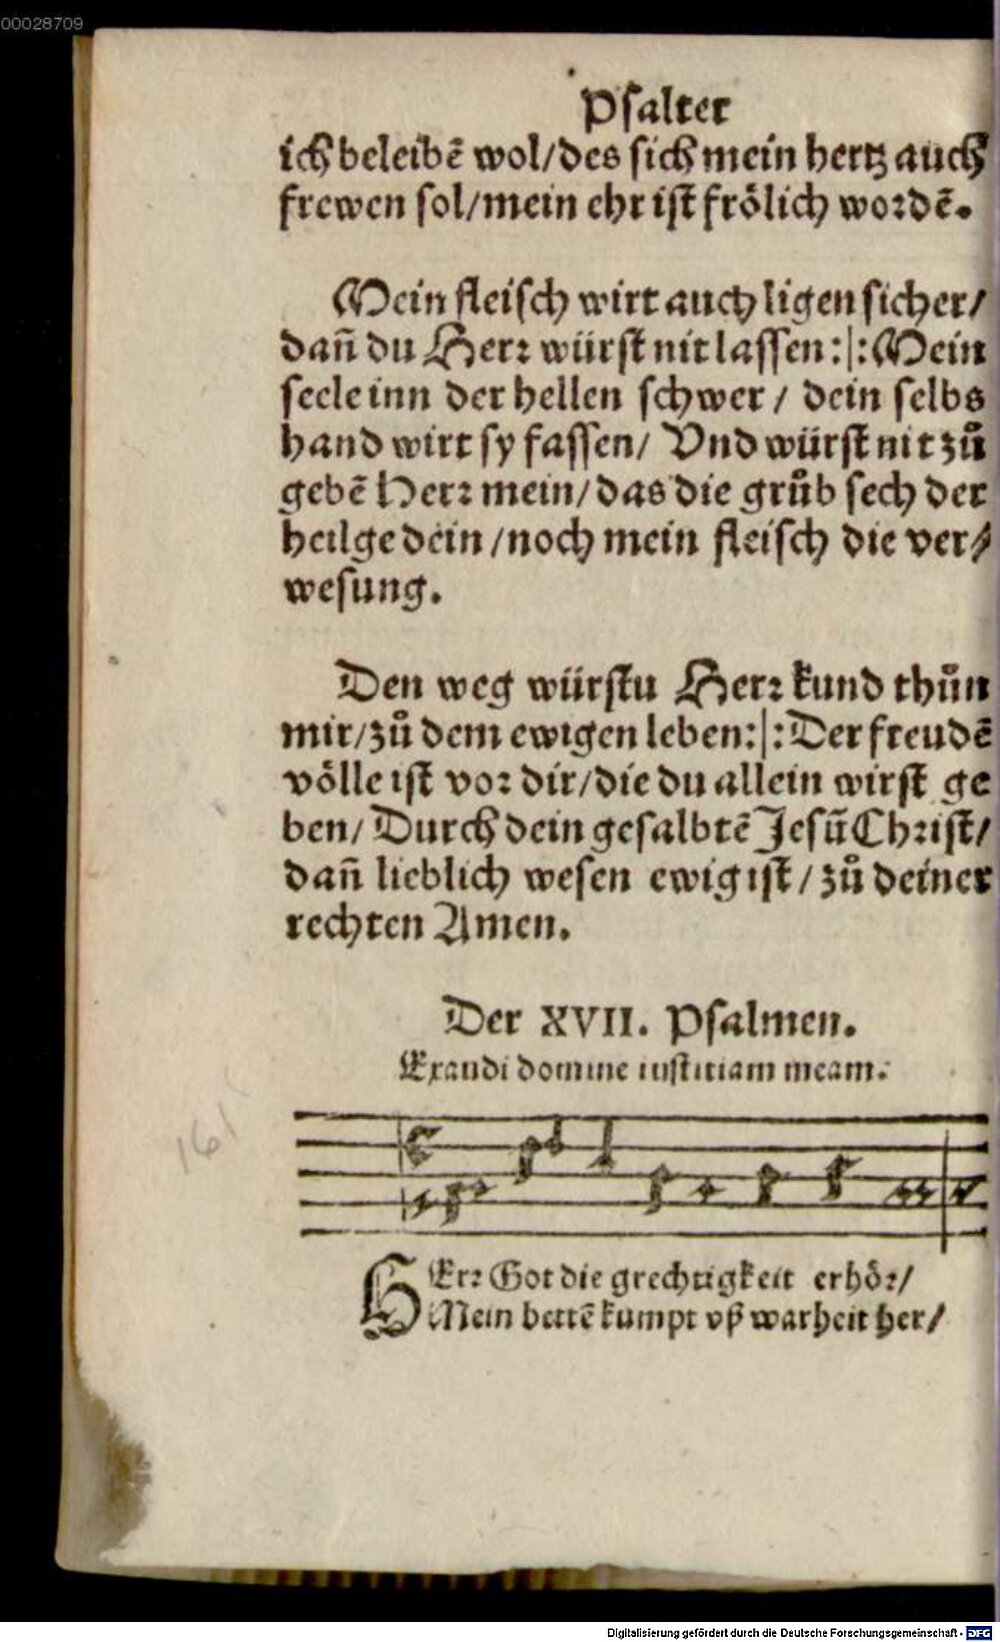 00028709
Psalter
ich beleibē wol/des sich mein hertz auch
frewen sol/mein ehr ist frölich wordē.
Mein fleisch wirt auch ligen sicher/
dañ du Herr würst nit lassen:|:Mein
seele inn der hellen schwer / dein selbs
hand wirt sy fassen/ Vnd würst nit zů
gebē Herr mein/das die grůb sech der
heilge dein /noch mein fleisch die ver⸗
wesung.
Den weg würstu Herr kund thůn
mir/zů dem ewigen leben:|:Der freudē
völle ist vor dir/die du allein wirst ge
ben/ Durch dein gesalbtē Jesū Christ/
dañ lieblich wesen ewig ist / zů deiner
rechten Amen.
Der XVII. Psalmen.
Exaudi domine iustitiam meam.
161
HErr Got die grechtigkeit erhör/
Mein bettē kumpt vß warheit her/
Digitalisierung gefördert durch die Deutsche Forschungsgemeinschaft - DFG